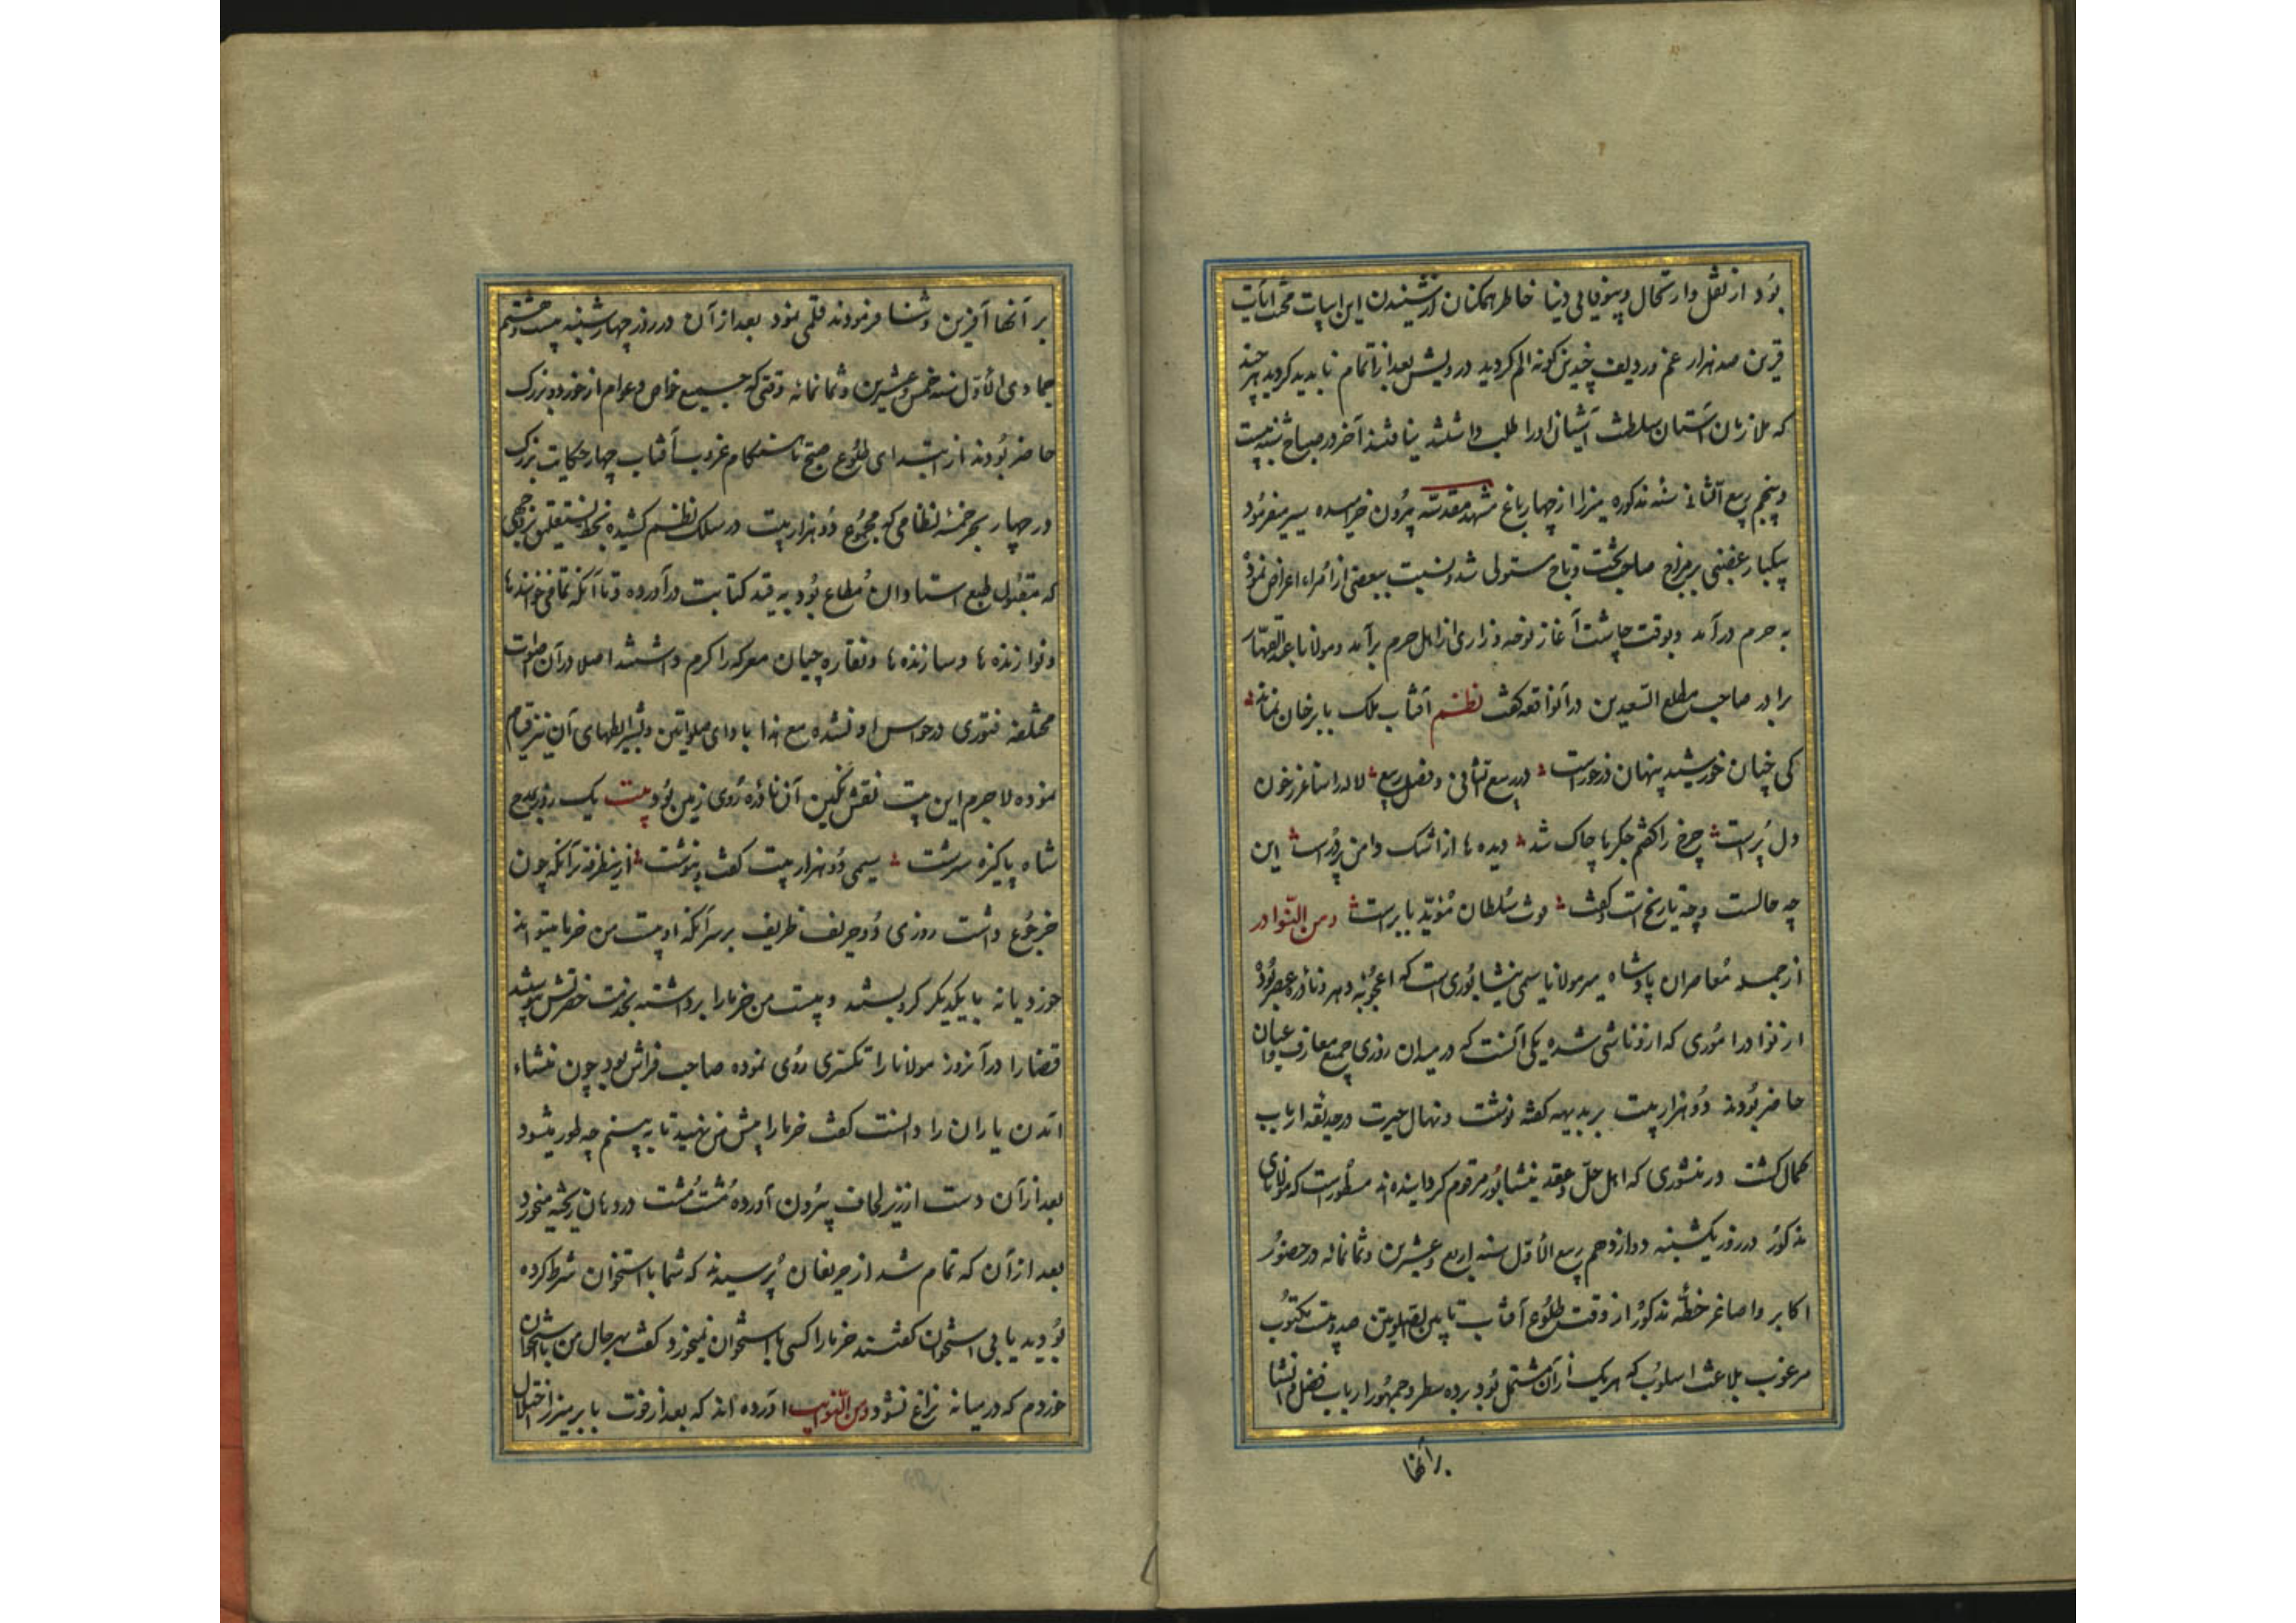 بود از نقل وارتحال و بیوفایی دنیا خاطر همکنان از شنیدن این ابیات محنت ایات
قرین صد هزار غم وردیف چندین کونه الم کردید درویش بعد از اتمام ناپدید کردید هر چند
که ملازمان آستان سلطنت آشیان اورا طلب داشتند نیافتند آخر در صباح شنبه بیست
وپنجم ربیع الثانی سنه مذکوره میرزا از چهار باغ مشهد مقدسه بیرون خرامیده سیر میفرمود
بیکبار غضبی بر مزاج صاحب تخت وتاج مستولی شد ونسبت ببعضی از امراء اعراض نموده
به حرم درآمد وبوقت چاشت آغاز نوحه وزاری از اهل حرم برآمد ومولانا عبد القهار
برادر صاحب مطلع السعدین در آنواقعه کفت نظم آفتاب ملک بابر خان نماند
کی چنان خورشید پنهان در خورست در ربیع الثانی وفصل ربیع لاله را ساغر ز خون
دل پرست چرخ را کفتم جکرها چاک شد دیده ها از اشک دامن پر درست این
چه حالست وچه تاریخ است کفت موت سلطان مؤید بابرست ومن النوادر
از جمله معاصران پادشاه میر مولانا سیمی نیشابوری است که اعجوبه دهر ونادره عصر بود
از نوادر اموری که ازو ناشی شده یکی آنست که در میدان روزی جمیع معارف واعیان
حاضر بودند دو هزار بیت بر بدیهه کفته نوشت ونهال حیرت در حدیقه ارباب
کمال کشت در منشوری که اهل حل وعقد نیشابور مرقوم کردانیده اند مسطور است که مولانای
مذکور در روز یکشنبه دوازدهم ربیع الأول سنه اربع وعشرین وثمانمائه در حضور
اکابر واصاغر خطه مذکور از وقت طلوع آفتاب تا بین الصلوتین صد وبیت مکتوب
مرغوب بلاغت اسلوب که هر یک از آن مشتمل بود بر ده سطر وجمهور ارباب فضل وانشا
بر آنها
بر آنها آفرین وثنا فرمودند قلمی نمود بعد از آن در روز چهار شنبه بیست وهشتم
جمادی الأول سنه خمس وعشرین وثمانمائه وقتی که جمیع خواص وعوام از خورد وبزرک
حاضر بودند از ابتدای طلوع صبح تا هنکام غروب آفتاب چهار حکایت بزرک
در چهار بحر خمسه نظامی که مجموع دو هزار بیت در سلک نظم کشیده بخط نستعلیق بر وجهی
که مقبول طبع استادان مطاع بود به قید کتابت درآورده وبا آنکه تمامی خوانندها
ونوازنده ها وسازنده ها ونقاره چیان معرکه را کرم داشتند اصلا در آن صلوات
مختلفه فتوری در حواس او نشده مع هذا با دای صلواتین وبشرایطهای آن نیز قیام
نموده لاجرم این بیت نقش نکین آن نادره روی زمین بود بیت یک روز بمدح
شاه پاکیزه سرشت سیمی دو هزار بیت کفت وبنوشت ازینطرفه تر آنکه چون
خر جوع داشت روزی دو حریف ظریف بر سر آنکه او بیست من خرما میتواند
خورد یا نه با یکدیکر کرو بستند وبیست من خرما را برداشته بخدمت حضرتش پیوستند
قضا را در آنروز مولانا را تکسری روی نموده صاحب فراش بود چون منشاء
آمدن یاران را دانست کفت خرما را پیش من نهید تا به بینم چه طور میشود
بعد از آن دست از زیر لحاف بیرون آورده مشت مشت در دهان ریخته میخورد
بعد از آن که تمام شد از حریفان پرسیدند که شما با استخوان شرط کرده
بودید یا بی استخوان کفتند خرما را کسی با استخوان نمیخورد کفت بهر حال من با استخوان
خوردم که در میانه نزاع نشود ومن النوایب آورده اند که بعد از فوت بابر میرزا اختلال